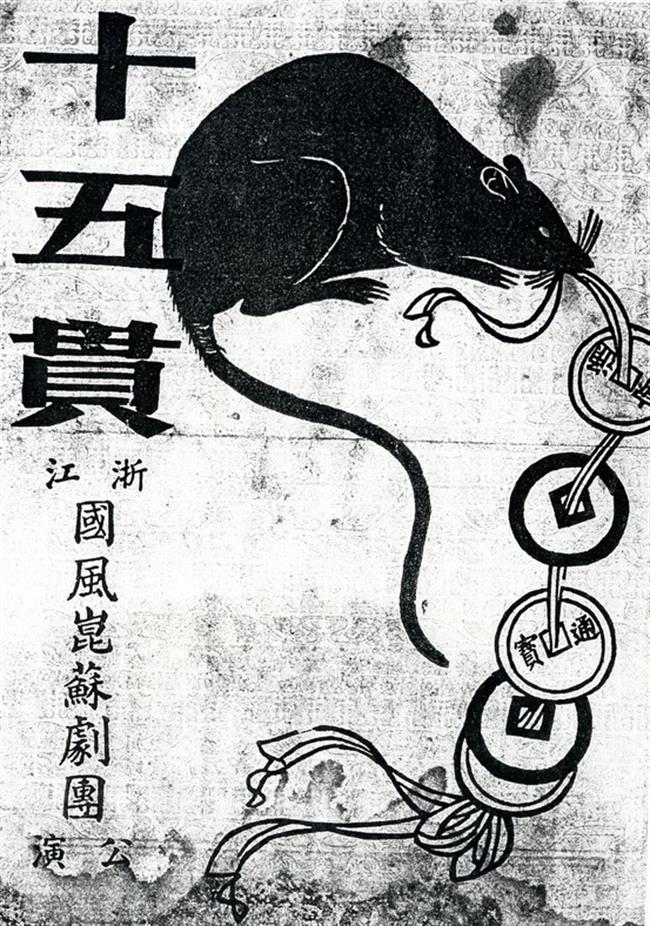 十五貫
浙江
國風崑蘇劇團
公演
通
通寶